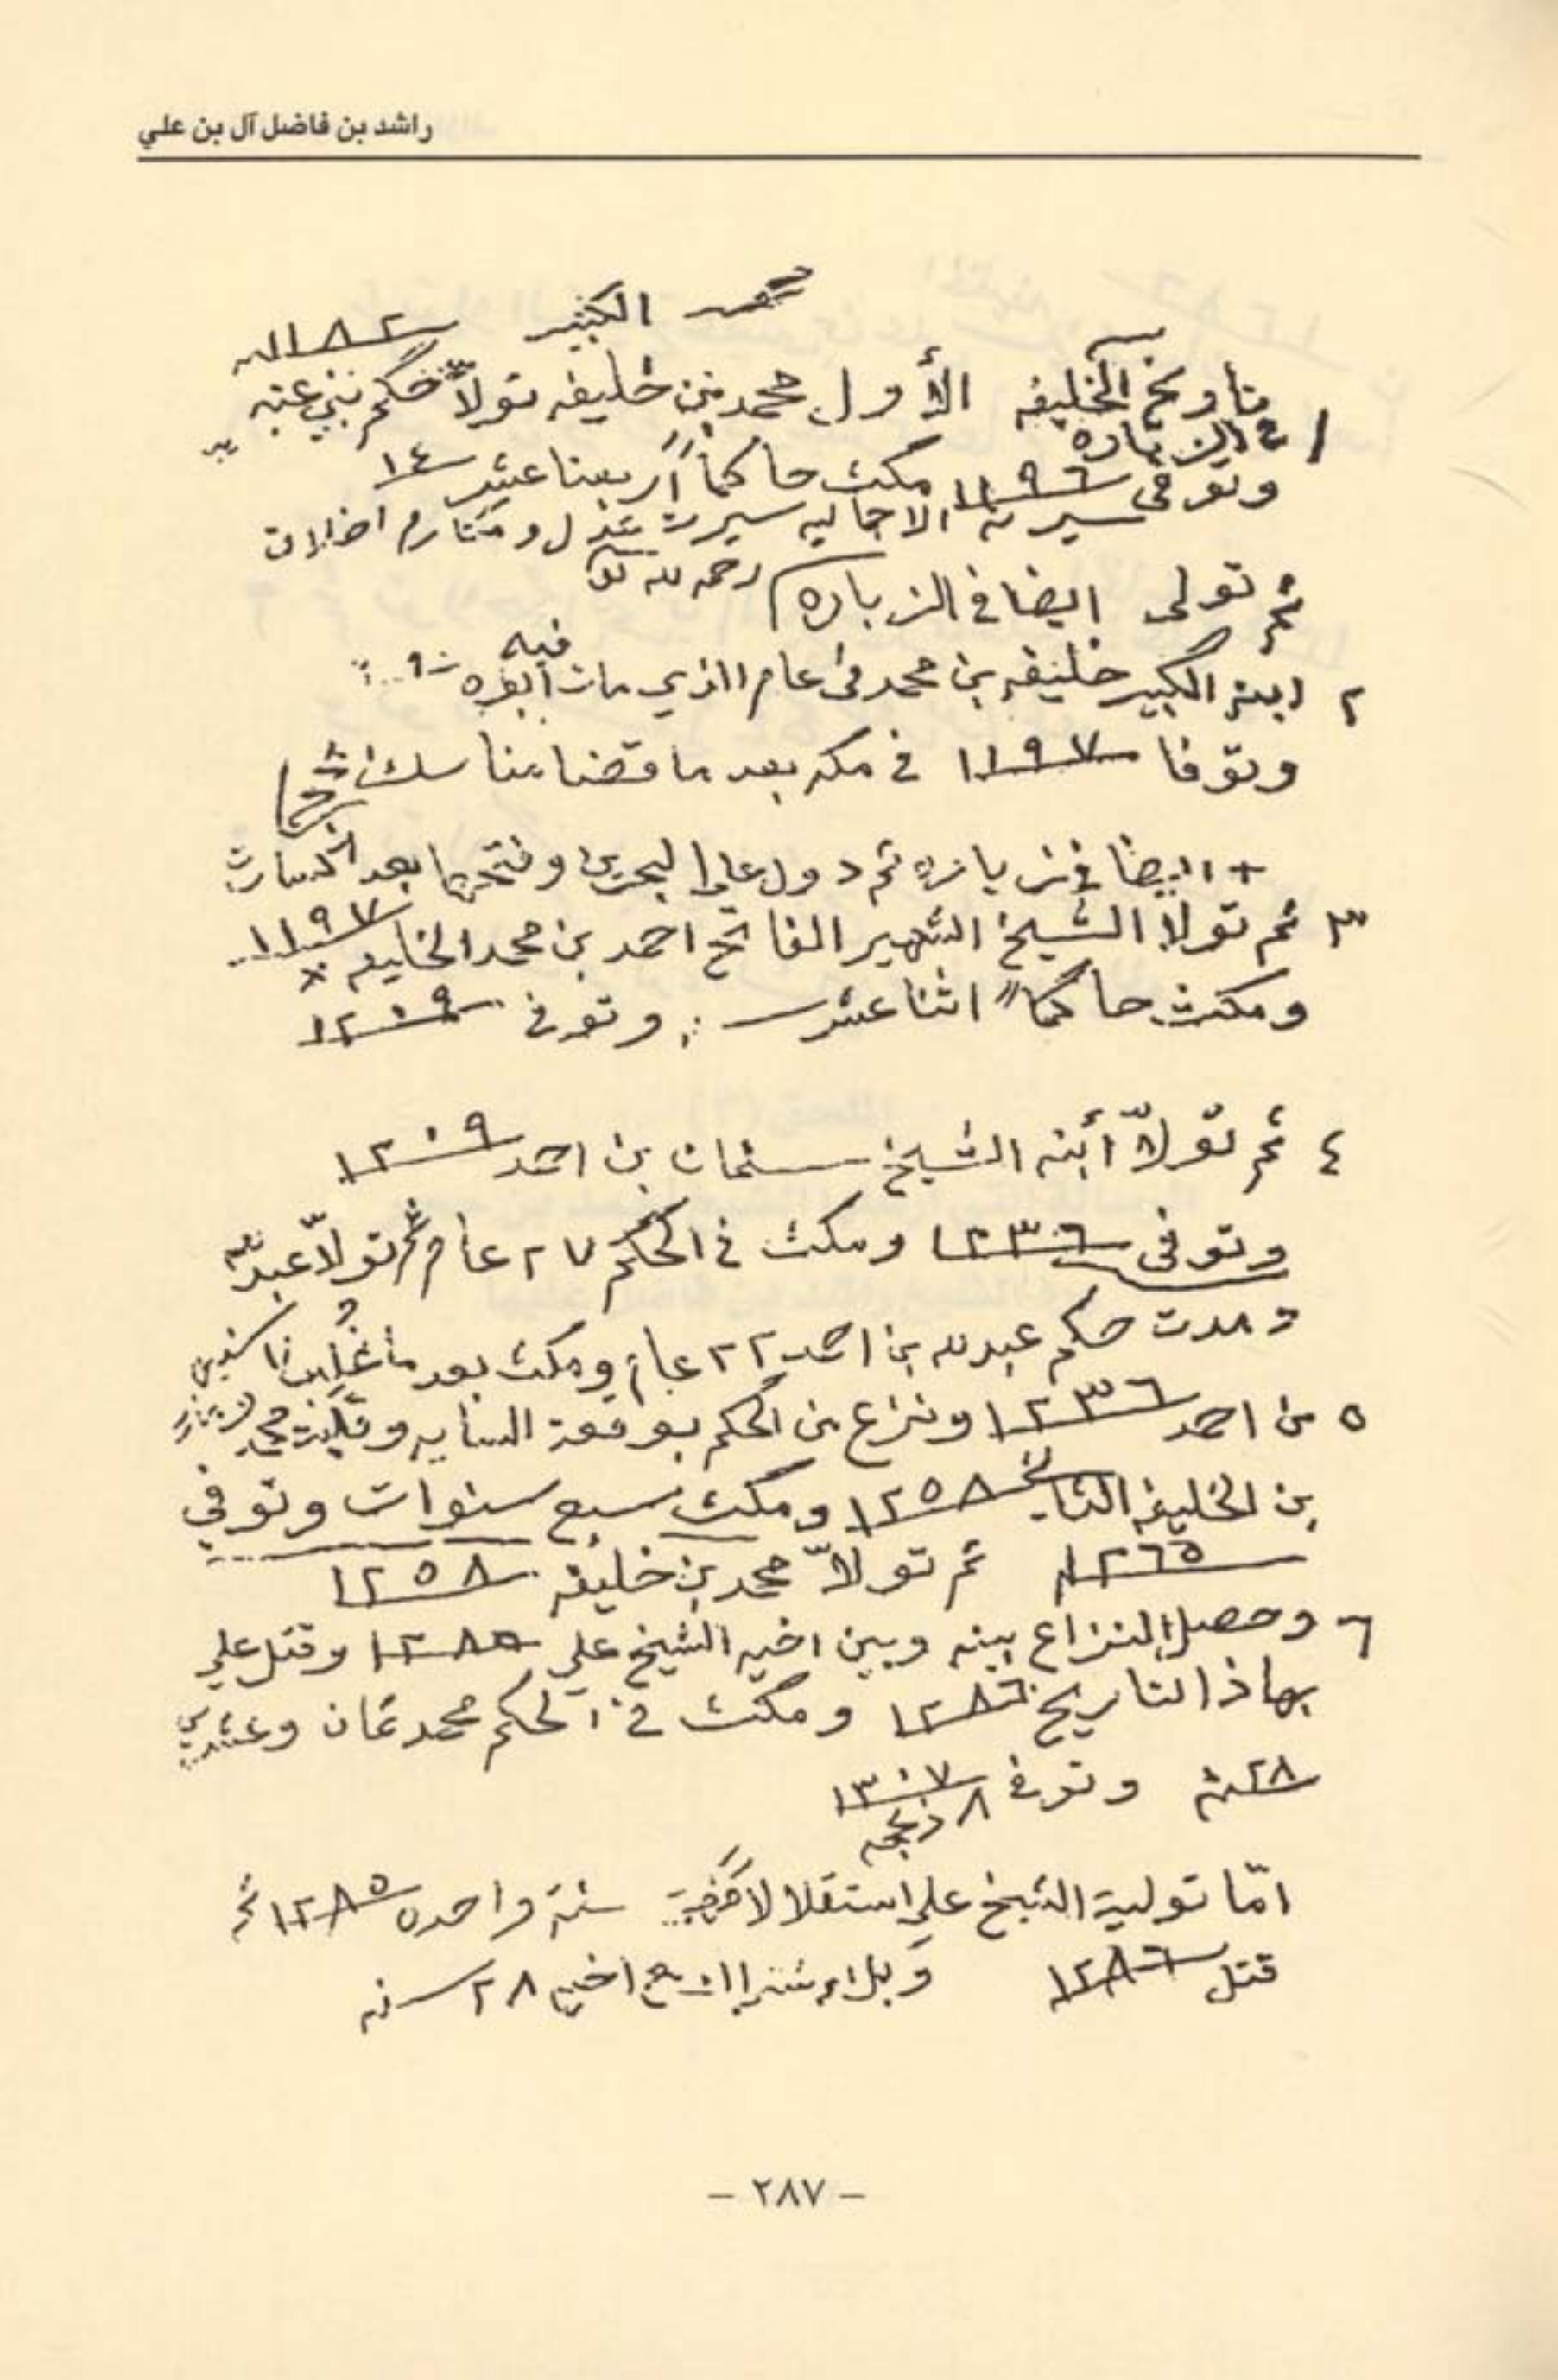 راشد بن فاضل آل بن علي
الكبير ١١٨٢
١ تاريخ آلخليفه الأول محمد بن خليفه تولاّ حكم بني عتبه
في الزباره
وتوفى ١١٩٦ مكث حاكماً أربعنا عشر ١٤
سيرته الاجماليه سيرت عدل ومكارم اخلاق
رحمه لله
ثم تولى ايضا في الزباره
٢ ابنه الكبير خليفه بن محمد في عام الذي مات فيه أبوه
وتوفا ١١٩٧ في مكه بعد ما قضا مناسك
+ ايضا في زباره ثم دول على البحرين وفتحها بعد
٣ ثم تولا الشيخ الشهير الفاتح احمد بن محمد الخليفه ١١٩٧
ومكث حاكماً اثنا عشر وتوفى ١٢٠٩
٤ ثم تولاّ أبنه الشيخ سلمان بن احمد ١٢٠٩
وتوفى ١٢٣٦ ومكث في الحكم ٢٧ عام ثم تولاّ عبدالله
ومدت حكم عبدلله بن احمد ٢٢ عام ومكث بعد ما غلب
٥ بن احمد ١٢٣٦ ونزع من الحكم بوقعة السايه محمد
بن الخليفه ١٢٥٨ ومكث سبع سنوات وتوفي
١٢٦٥ ثم تولاّ محمد بن خليفه ١٢٥٨
٦ وحصل النزاع بينه وبين اخيه الشيخ علي ١٢٨٥ وقتل علي
بهاذا التاريخ ١٢٨٦ ومكث في الحكم محمد ثمان وعشرين
٢٨ سنة وتوفى ١٣٠٧
٨ ذلحجه
امّا تولية الشيخ علي استقلالا سنة واحده ١٢٨٥ ثم
قتل ١٢٨٦ اخيه ٢٨ سنه
- ٢٨٧ -